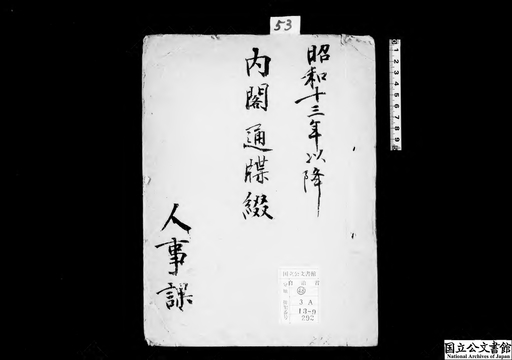 53
昭和十三年以降
内閣通牒綴
人事課
国立公文書館
3A
13-9
292
国立公文書館
National Archives of Japan